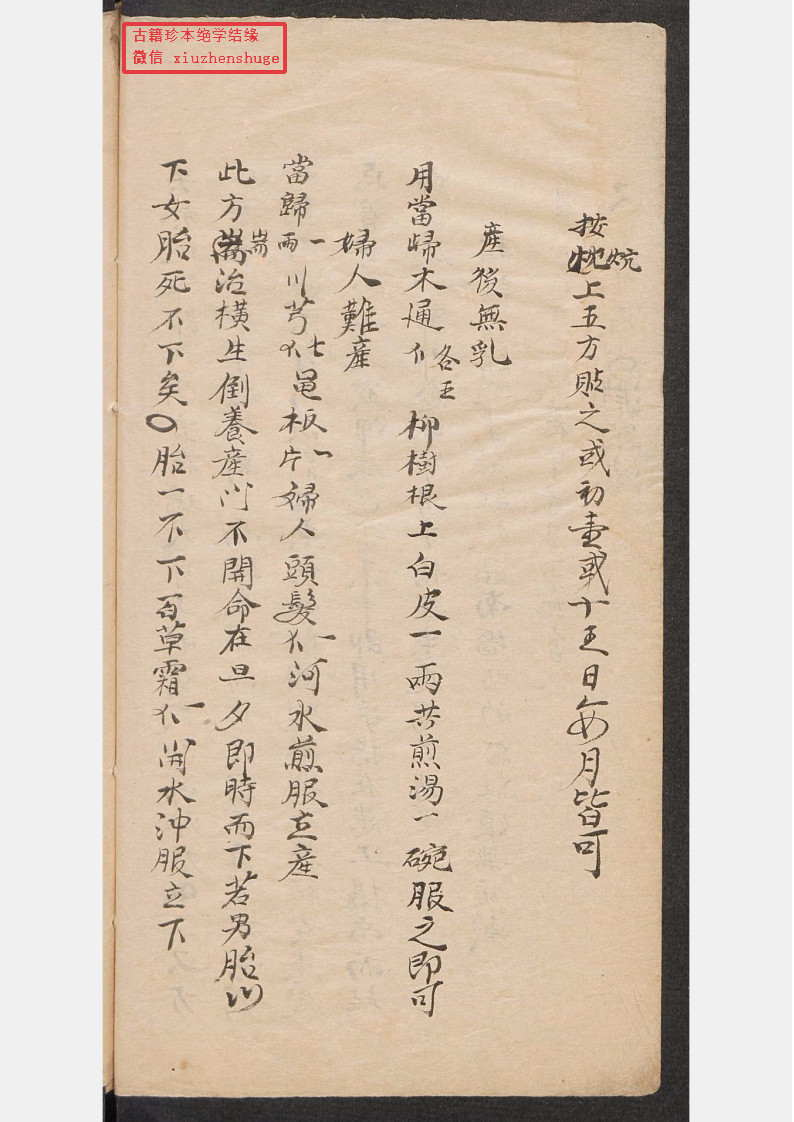 古籍珍本绝学结缘
微信 xiuzhenshuge
按炕上五方貼之或初壹或十五日每月皆可
產後無乳
用當歸木通各五个柳樹根上白皮一兩共煎湯一碗服之即可
婦人難產
當歸一兩川芎七黽板一片婦人頭髮一河水煎服立產
此方耑治橫生倒養產門不開命在旦夕即時而下若男胎
下女胎死不下矣〇胎一不下百草霜一開水沖服立下